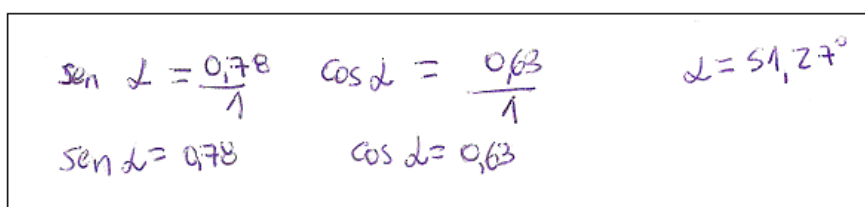 sen α = 0,78/1 cos α = 0,63/1 α = 51,27°
sen α = 0,78 cos α = 0,63